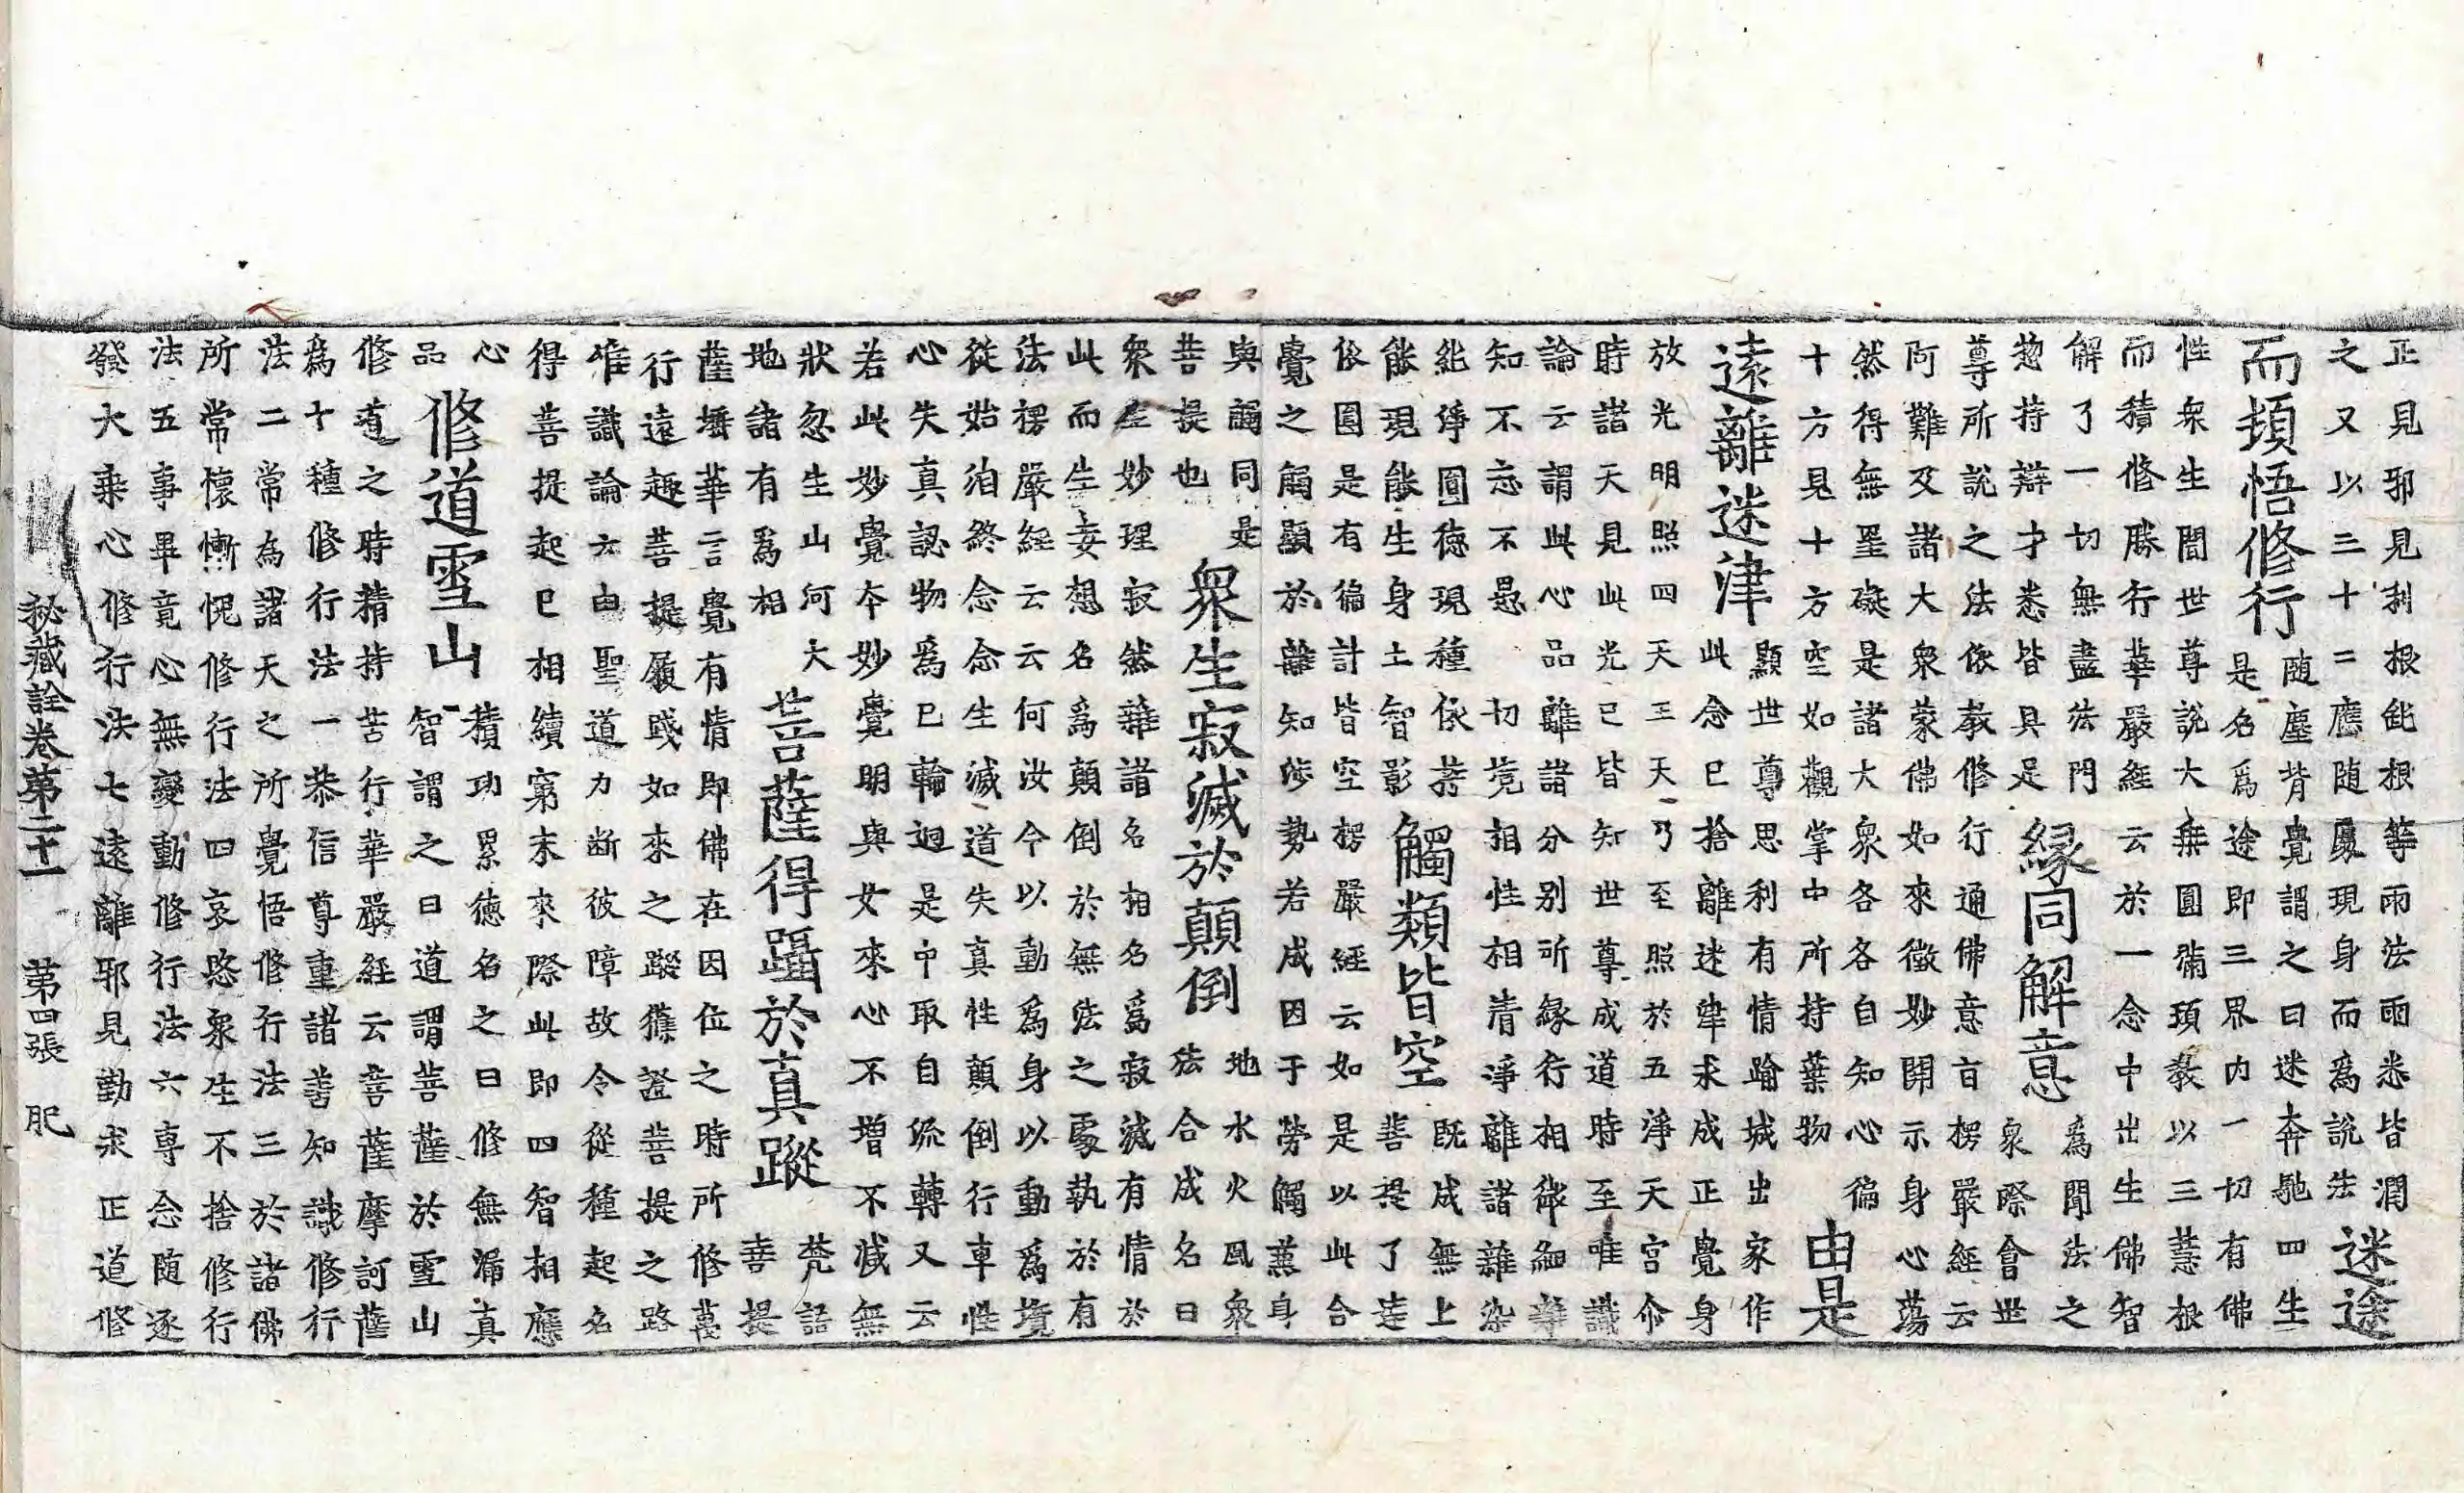 正見邪見利根鈍根等雨法雨悉皆潤
之又以三十二應随處現身而為說法
迷途
随塵背覺謂之曰迷奔馳四生
是名為途即三界内一切有佛
而頓悟修行
性衆生聞世尊說大無圓滿頓教以三慧根
而積修勝行華嚴經云於一念中出生佛智
解了一切無盡法門
惣持辯才悉皆具足
緣同解意
為聞法之
衆際會世
尊所說之法依教修行通佛意旨楞嚴經云
阿難及諸大衆蒙佛如來微妙開示身心蕩
然得無罣礙是諸大衆各各自知心徧
十方見十方空如觀掌中所持葉物
由是
遠離迷津
顯世尊思利有情踰城出家作
此念已捨離迷津求成正覺身
放光明照四天王天乃至照於五淨天宮尒
時諸天見此光已皆知世尊成道時至唯識
論云謂此心品離諸分别所緣行相微細難
知不忘不愚一切境相性相清淨離諸雜染
純淨圓德現種依持
能現能生身土智影
觸類皆空
既成無上
菩提了達
俗圓是有徧計皆空楞嚴經云如是以此合
覺之觸顯於離知涉勢若成因于勞觸蒸身
與觸同是
菩提也
衆生寂滅於顛倒
地水火風衆
法合成名曰
衆生妙理寂然離諸名相名為寂滅有情於
此而生妄想名為顛倒於無法之處執於有
法楞嚴經云云何汝今以動為身以動為境
從始洎終念念生滅道失真性顛倒行事性
心失真認物為已輪迴是中取自流轉又云
若此妙覺夲妙覺明與女來心不增不減無
狀忽生山河大
地諸有為相
菩薩得躡於真蹤
梵語
菩提
薩埵華言覺有情即佛在因位之時所修萬
行遠趣菩提履踐如來之蹤獲證菩提之路
唯識論云由聖道力断彼障故令從種起名
得菩提起已相續窮未來際此即四智相應
心
品
修道雪山
積功累德名之曰修無漏真
智謂之曰道謂菩薩於雪山
修道之時精持苦行華嚴經云菩薩摩訶薩
為十種修行法一恭信尊重諸善知識修行
法二常為諸天之所覺悟修行法三於諸佛
所常懷慚愧修行法四哀愍衆生不捨修行
法五事畢竟心無變動修行法六専念随逐
發大乗心修行法七遠離邪見勤求正道修
秘藏詮卷第二十一 第四張 肥